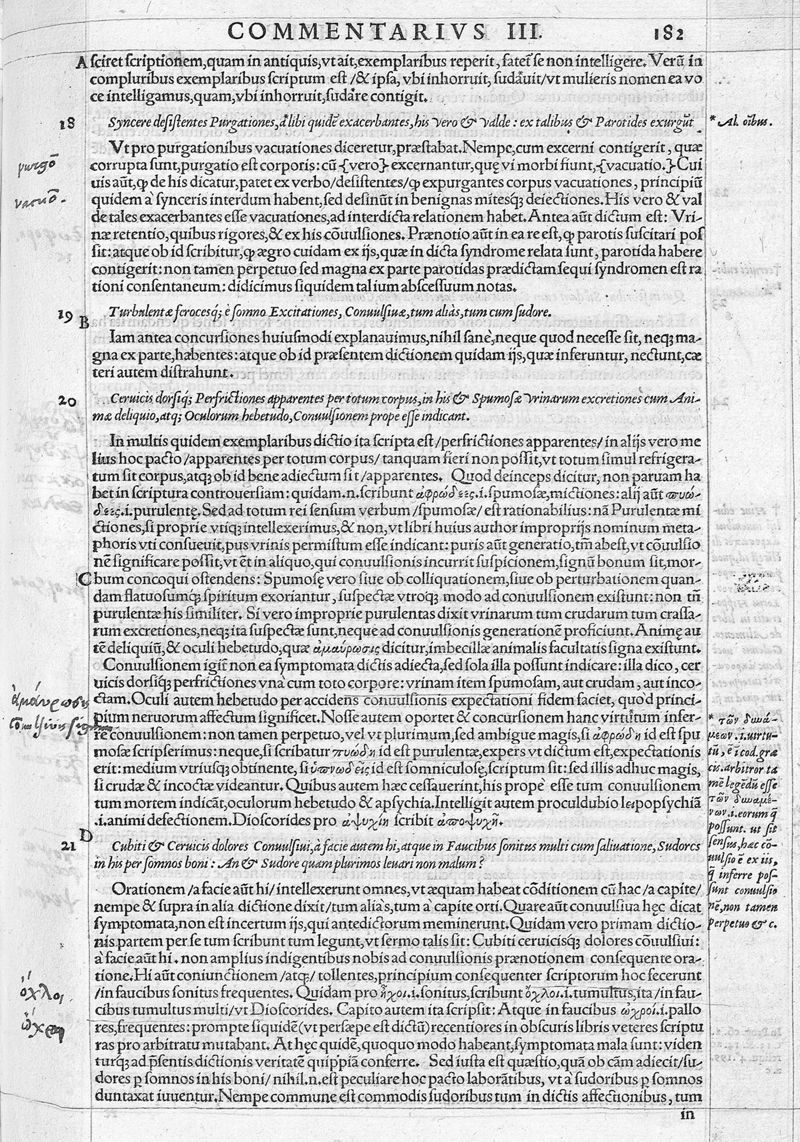 COMMENTARIVS III. 182
A sciret scriptionem, quam in antiquis, vt ait, exemplaribus reperit, fatet̃ se non intelligere. Verũ in
compluribus exemplaribus scriptum est /& ipsa, vbi inhorruit, sudauit/ vt mulieris nomen ea vo
ce intelligamus, quam, vbi inhorruit, sudare contigit.
18 Syncere desistentes Purgationes, alibi quidẽ exacerbantes, his Vero & Valde: ex talibus & Parotides exurgũt
* Al. oĩbus.
Vt pro purgationibus vacuationes diceretur, præstabat. Nempe, cum excerni contigerit, quæ
corrupta sunt, purgatio est corporis: cũ -{vero}- excernantur, quę vi morbi fiunt, -{vacuatio.}- Cui
uis aũt, ꝙ de his dicatur, patet ex verbo/desistentes/ꝙ expurgantes corpus vacuationes, principiũ
quidem à synceris interdum habent, sed desinũt in benignas mitesq; deiectiones. His vero & val
de tales exacerbantes esse vacuationes, ad interdicta relationem habet. Antea aũt dictum est: Vri-
næ retentio, quibus rigores, & ex his cõuulsiones. Prænotio aũt in ea re est, ꝙ parotis suscitari pos
sit: atque ob id scribitur, ꝙ ægro cuidam ex ijs, quæ in dicta syndrome relata sunt, parotida habere
contigerit: non tamen perpetuo sed magna ex parte parotidas prædictam sequi syndromen est ra
tioni consentaneum: didicimus siquidem talium abscessuum notas.
19 B Turbulentæ ferocesq; è somno Excitationes, Conuulsiuæ, tum aliàs, tum cum sudore.
Iam antea concursiones huiusmodi explanauimus, nihil sanè, neque quod necesse sit, neq; ma-
gna ex parte, habentes: atque ob id præsentem dictionem quidam ijs, quæ inferuntur, nectunt, cæ
teri autem distrahunt.
20 Ceruicis dorsiq; Perfrictiones apparentes per totum corpus, in his & Spumosæ Vrinarum excretiones cum Ani-
mæ deliquio, atq; Oculorum hebetudo, Conuulsionem prope esse indicant.
In multis quidem exemplaribus dictio ita scripta est / perfrictiones apparentes/ in alijs vero me
lius hoc pacto /apparentes per totum corpus/ tanquam fieri non possit, vt totum simul refrigera-
tum sit corpus, atq; ob id bene adiectum sit /apparentes. Quod deinceps dicitur, non paruam ha
bet in scriptura controuersiam: quidam .n. scribunt ἀφρώδεες .i. spumosæ, mictiones: alij aũt πυώ-
δεες .i. purulentę. Sed ad totum rei sensum verbum /spumosæ/ est rationabilius: nã Purulentæ mi
ctiones, si proprie vtiq; intellexerimus, & non, vt libri huius author improprijs nominum meta-
phoris vti consueuit, pus vrinis permistum esse indicant: puris aũt generatio, tm̃ abest, vt cõuulsio
nẽ significare possit, vt ẽt in aliquo, qui conuulsionis incurrit suspicionem, signũ bonum sit, mor-
C bum concoqui ostendens: Spumosę vero siue ob colliquationem, siue ob perturbationem quan-
dam flatuosumq; spiritum exoriantur, suspectæ vtroq; modo ad conuulsionem existunt: non tñ
purulentæ his similiter. Si vero improprie purulentas dixit vrinarum tum crudarum tum crassa-
rum excretiones, neq; ita suspectæ sunt, neque ad conuulsionis generationẽ proficiunt. Animę au
tẽ deliquiũ, & oculi hebetudo, quæ ἀμαύρωσις dicitur, imbecillæ animalis facultatis signa existunt.
Conuulsionem igit̃ non ea symptomata dictis adiecta, sed sola illa possunt indicare: illa dico, cer
uicis dorsiq; perfrictiones vnà cum toto corpore: vrinam item spumosam, aut crudam, aut inco-
ctam. Oculi autem hebetudo per accidens conuulsionis expectationi fidem faciet, quod princi-
pium neruorum affectum significet. Nosse autem oportet & concursionem hanc virtutum infer-
re conuulsionem: non tamen perpetuo, vel vt plurimum, sed ambigue magis, si ἀφρώδη id est spu
mosæ scripserimus: neque, si scribatur πυώδη id est purulentæ, expers vt dictum est, expectationis
erit: medium vtriusq; obtinente, si ὑπνώδεις id est somniculosę, scriptum sit: sed illis adhuc magis,
si crudæ & incoctæ videantur. Quibus autem hæc cessauerint, his propè esse tum conuulsionem
tum mortem indicãt, oculorum hebetudo & apsychia. Intelligit autem proculdubio leipopsychiã
.i. animi defectionem. Dioscorides pro ἀψυχίη scribit ἀποψυχῆ.
* τῶν δυνά-
μεων .i. virtu-
tũ, ẽ ĩ cod. græ
cis. arbitror ta
mẽ legẽdũ esse
τῶν δυναμέ-
νων .i. eorum q̃
possunt. ut sit
sensus, hãc cõ-
uulsio ẽ ex iis,
q̃ inferre pos-
sunt conuulsio
nẽ, non tamen
perpetuo &c.
D
21 Cubiti & Ceruicis dolores Conuulsiui, à facie autem hi, atque in Faucibus sonitus multi cum saliuatione, Sudores
in his per somnos boni: An & Sudore quam plurimos leuari non malum?
Orationem /a facie aũt hi/ intellexerunt omnes, vt æquam habeat cõditionem cũ hac /a capite/
nempe & supra in alia dictione dixit/tum aliàs, tum à capite orti. Quare aũt conuulsiua hęc dicat
symptomata, non est incertum ijs, qui antedictorum meminerunt. Quidam vero primam dictio-
nis partem per se tum scribunt tum legunt, vt sermo talis sit: Cubiti ceruicisq; dolores cõuulsiui:
à facie aũt hi. non amplius indigentibus nobis ad conuulsionis prænotionem consequente ora-
tione. Hi aũt coniunctionem /atq;/ tollentes, principium consequenter scriptorum hoc fecerunt
/in faucibus sonitus frequentes. Quidam pro ἦχοι .i. sonitus, scribunt ὄχλοι .i. tumultus, ita /in fau-
cibus tumultus multi/ vt Dioscorides. Capito autem ita scripsit: Atque in faucibus ὠχροί .i. pallo
res, frequentes: prompte siquidẽ (vt persæpe est dictũ) recentiores in obscuris libris veteres scriptu
ras pro arbitratu mutabant. At hęc quidẽ, quoquo modo habeant, symptomata mala sunt: viden
turq; ad p̃sentis dictionis veritatẽ quippiã conferre. Sed iusta est quæstio, quã ob cãm adiecit/su-
dores p somnos in his boni/ nihil .n. est peculiare hoc pacto laborãtibus, vt a sudoribus p somnos
duntaxat iuuentur. Nempe commune est commodis sudoribus tum in dictis affectionibus, tum
in
purgõ
vacuõ.
ἀμαύρωσις
ὄχλοι
ὠχροι